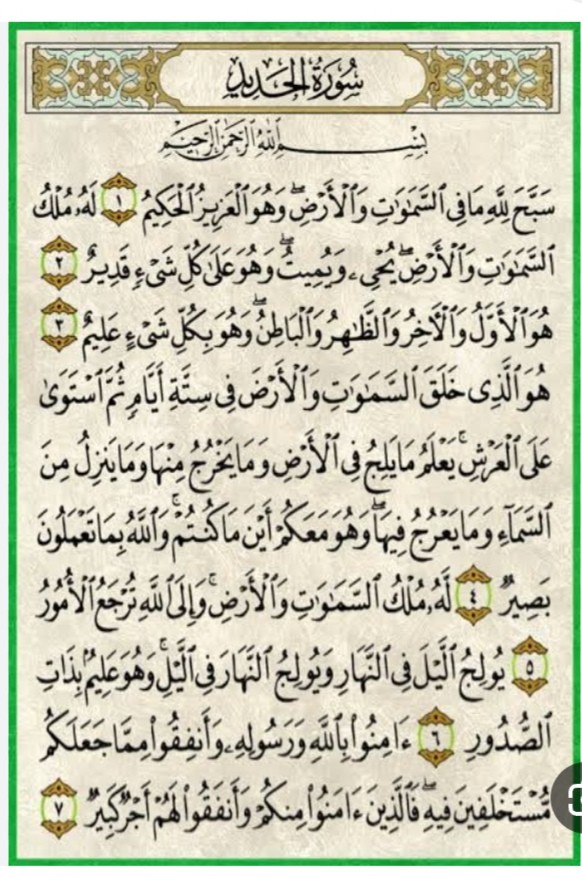 سُورَةُ الحَدِيدِ
بِسْمِ ٱللَّهِ ٱلرَّحْمَٰنِ ٱلرَّحِيمِ
سَبَّحَ لِلَّهِ مَا فِى ٱلسَّمَٰوَٰتِ وَٱلْأَرْضِ ۖ وَهُوَ ٱلْعَزِيزُ ٱلْحَكِيمُ ١ لَهُۥ مُلْكُ
ٱلسَّمَٰوَٰتِ وَٱلْأَرْضِ ۖ يُحْىِۦ وَيُمِيتُ ۖ وَهُوَ عَلَىٰ كُلِّ شَىْءٍ قَدِيرٌ ٢
هُوَ ٱلْأَوَّلُ وَٱلْءَاخِرُ وَٱلظَّٰهِرُ وَٱلْبَاطِنُ ۖ وَهُوَ بِكُلِّ شَىْءٍ عَلِيمٌ ٣
هُوَ ٱلَّذِى خَلَقَ ٱلسَّمَٰوَٰتِ وَٱلْأَرْضَ فِى سِتَّةِ أَيَّامٍ ثُمَّ ٱسْتَوَىٰ
عَلَى ٱلْعَرْشِ ۚ يَعْلَمُ مَا يَلِجُ فِى ٱلْأَرْضِ وَمَا يَخْرُجُ مِنْهَا وَمَا يَنزِلُ مِنَ
ٱلسَّمَآءِ وَمَا يَعْرُجُ فِيهَا ۖ وَهُوَ مَعَكُمْ أَيْنَ مَا كُنتُمْ ۚ وَٱللَّهُ بِمَا تَعْمَلُونَ
بَصِيرٌ ٤ لَّهُۥ مُلْكُ ٱلسَّمَٰوَٰتِ وَٱلْأَرْضِ ۚ وَإِلَى ٱللَّهِ تُرْجَعُ ٱلْأُمُورُ
٥ يُولِجُ ٱلَّيْلَ فِى ٱلنَّهَارِ وَيُولِجُ ٱلنَّهَارَ فِى ٱلَّيْلِ ۚ وَهُوَ عَلِيمٌۢ بِذَاتِ
ٱلصُّدُورِ ٦ ءَامِنُوا۟ بِٱللَّهِ وَرَسُولِهِۦ وَأَنفِقُوا۟ مِمَّا جَعَلَكُم
مُّسْتَخْلَفِينَ فِيهِ ۖ فَٱلَّذِينَ ءَامَنُوا۟ مِنكُمْ وَأَنفَقُوا۟ لَهُمْ أَجْرٌ كَبِيرٌ ٧